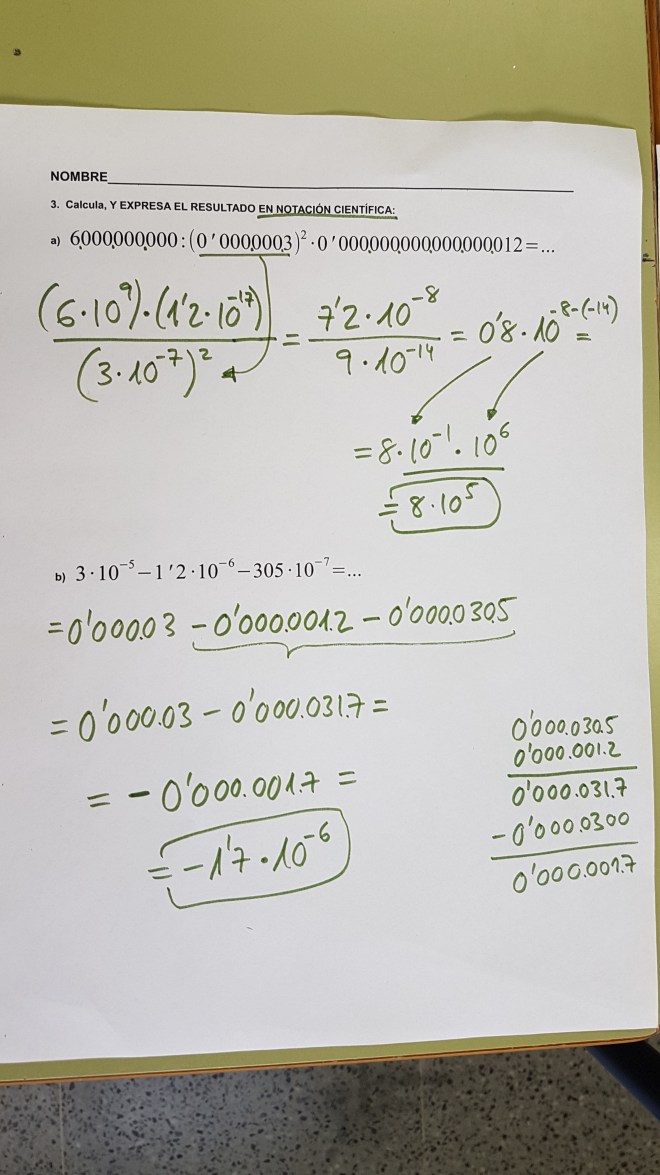 NOMBRE
3. Calcula, Y EXPRESA EL RESULTADO EN NOTACIÓN CIENTÍFICA:
a) 6,000,000,000 : (0'000,000,3)² · 0'000,000,000,000,000,012 = ...
(6·10⁹)·(1'2·10⁻¹⁷) / (3·10⁻⁷)² = 7'2·10⁻⁸ / 9·10⁻¹⁴ = 0'8·10⁻⁸⁻⁽⁻¹⁴⁾ =
= 8·10⁻¹·10⁶
= 8·10⁵
b) 3·10⁻⁵ – 1'2·10⁻⁶ – 305·10⁻⁷ = ...
= 0'000.03 – 0'000.001.2 – 0'000.030.5
= 0'000.03 – 0'000.031.7 =
= – 0'000.001.7 =
= – 1'7·10⁻⁶
0'000.030.5
0'000.001.2
0'000.031.7
– 0'000.0300
0'000.001.7